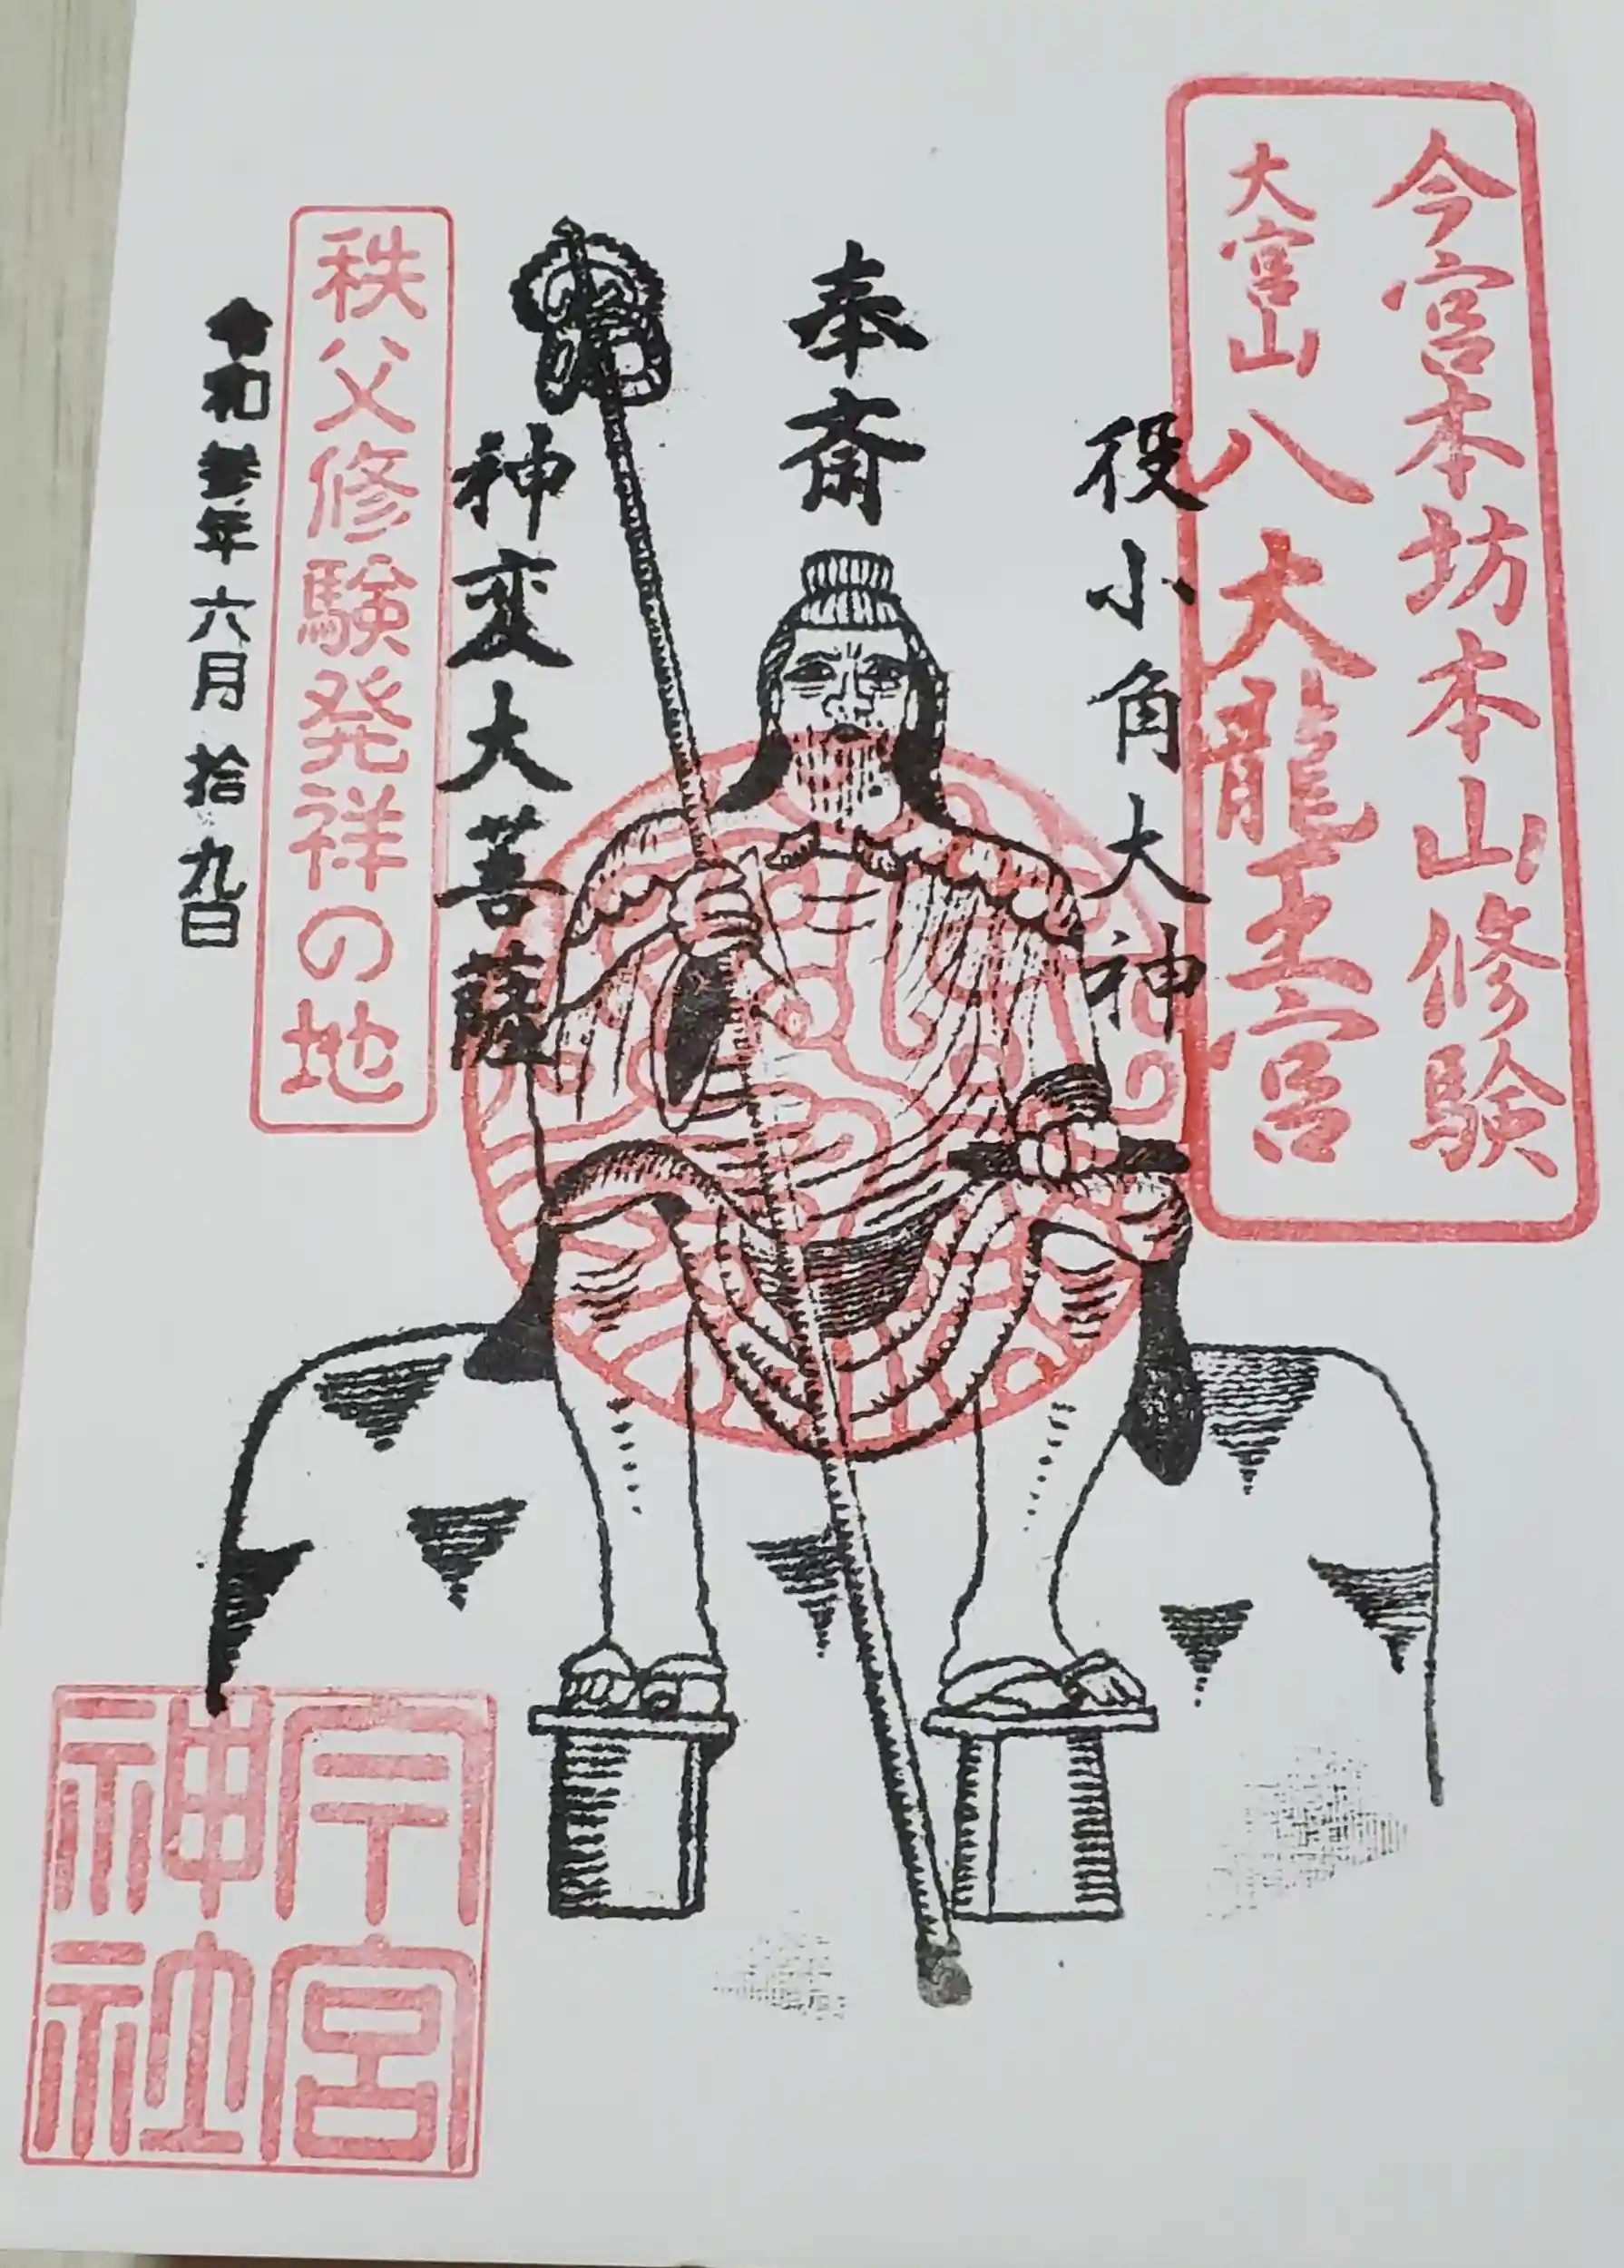 今宮本坊本山修験
大宮山八大龍王宮
役小角大神
奉斎
神変大菩薩
秩父修験発祥の地
令和参年六月拾九日
今宮神社